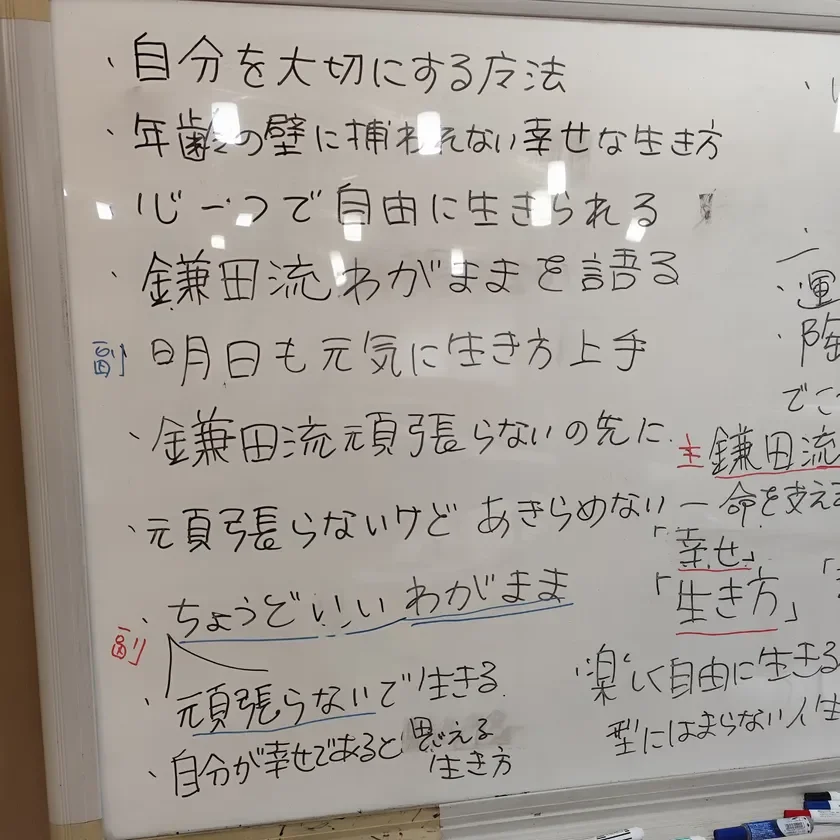 ・自分を大切にする方法
・年齢の壁に捕われない幸せな生き方
・心一つで自由に生きられる
・鎌田流わがままを語る
副 明日も元気に生き方上手
・鎌田流頑張らないの先に
・頑張らないけど あきらめない
・ちょうどいい わがまま
副
・頑張らないで生きる
・自分が幸せであると思える
生き方
運
陶
でこ
主 鎌田流
一命を支え
「幸せ」
「生き方」
・楽しく自由に生きる
型にはまらない人生